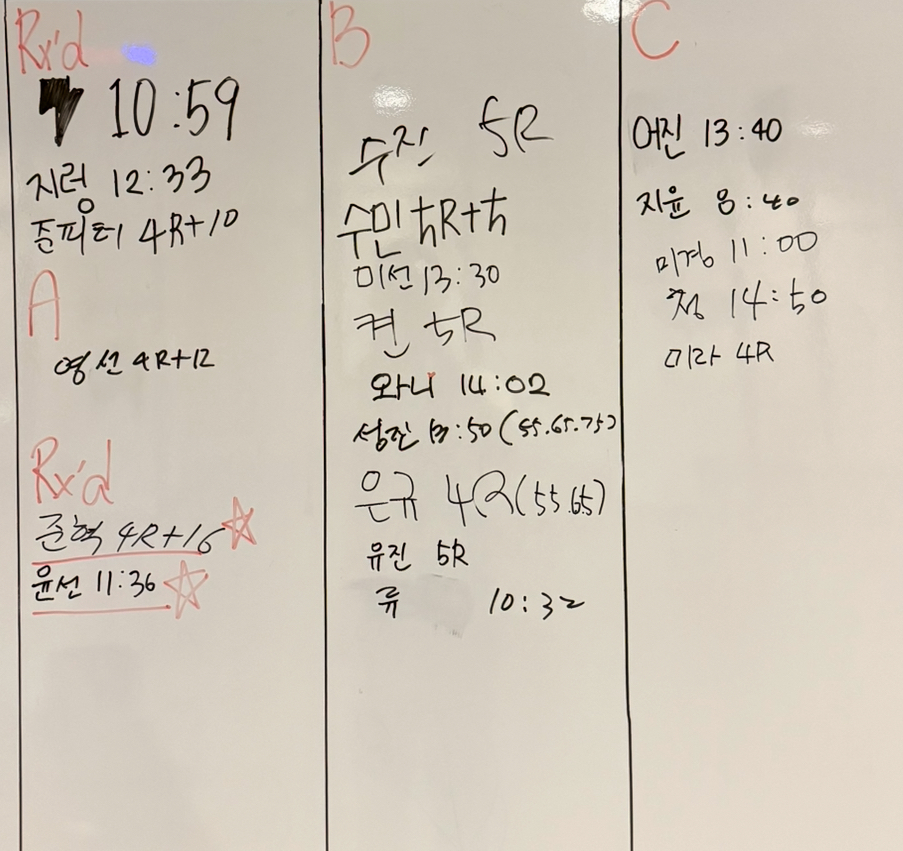 Rx'd
10:59
지렁 12:33
존피터 4R+10
A
영선 4R+12
Rx'd
준혁 4R+16
윤선 11:36
B
수진 5R
수민 5R+5
미선 13:30
켠 5R
와니 14:02
성진 13:50 (55.65.75)
은규 4R (55.65)
유진 5R
류 10:32
C
어진 13:40
지윤 8:40
미경 11:00
청 14:50
미라 4R